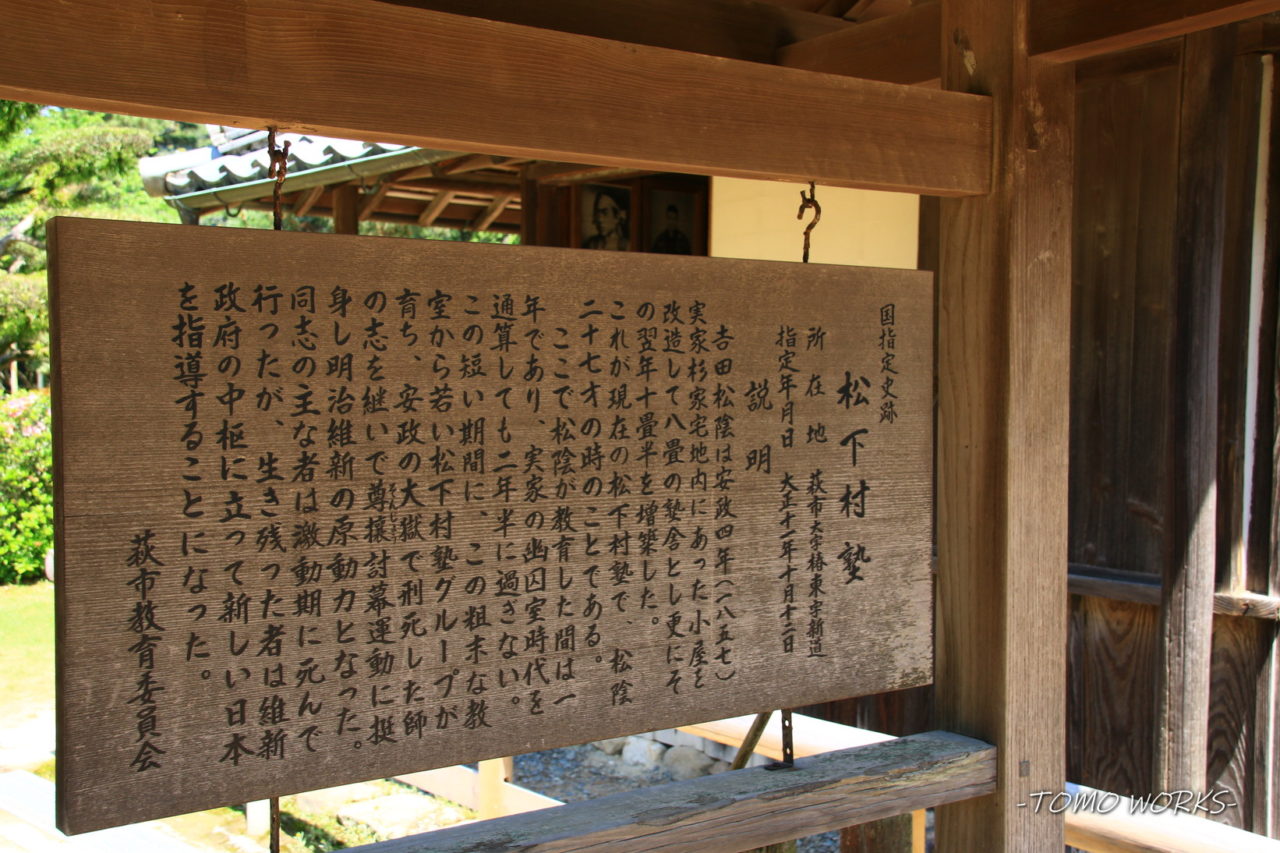 国指定史跡
松下村塾
所在地 萩市大字椿東字新道
指定年月日 大正十一年十月十二日
説明
吉田松陰は安政四年(一八五七)
実家杉家宅地内にあった小屋を
改造して八畳の塾舎とし更にそ
の翌年十畳半を増築した。
これが現在の松下村塾で、松陰
二十七才の時のことである。
ここで松陰が教育した間は一
年であり、実家の幽囚室時代を
通算しても二年半に過ぎない。
この短い期間に、この粗末な教
室から若い松下村塾グループが
育ち、安政の大獄で刑死した師
の志を継いで尊攘討幕運動に挺
身し明治維新の原動力となった。
同志の主な者は激動期に死んで
行ったが、生き残った者は維新
政府の中枢に立って新しい日本
を指導することになった。
萩市教育委員会
-TOMO WORKS-